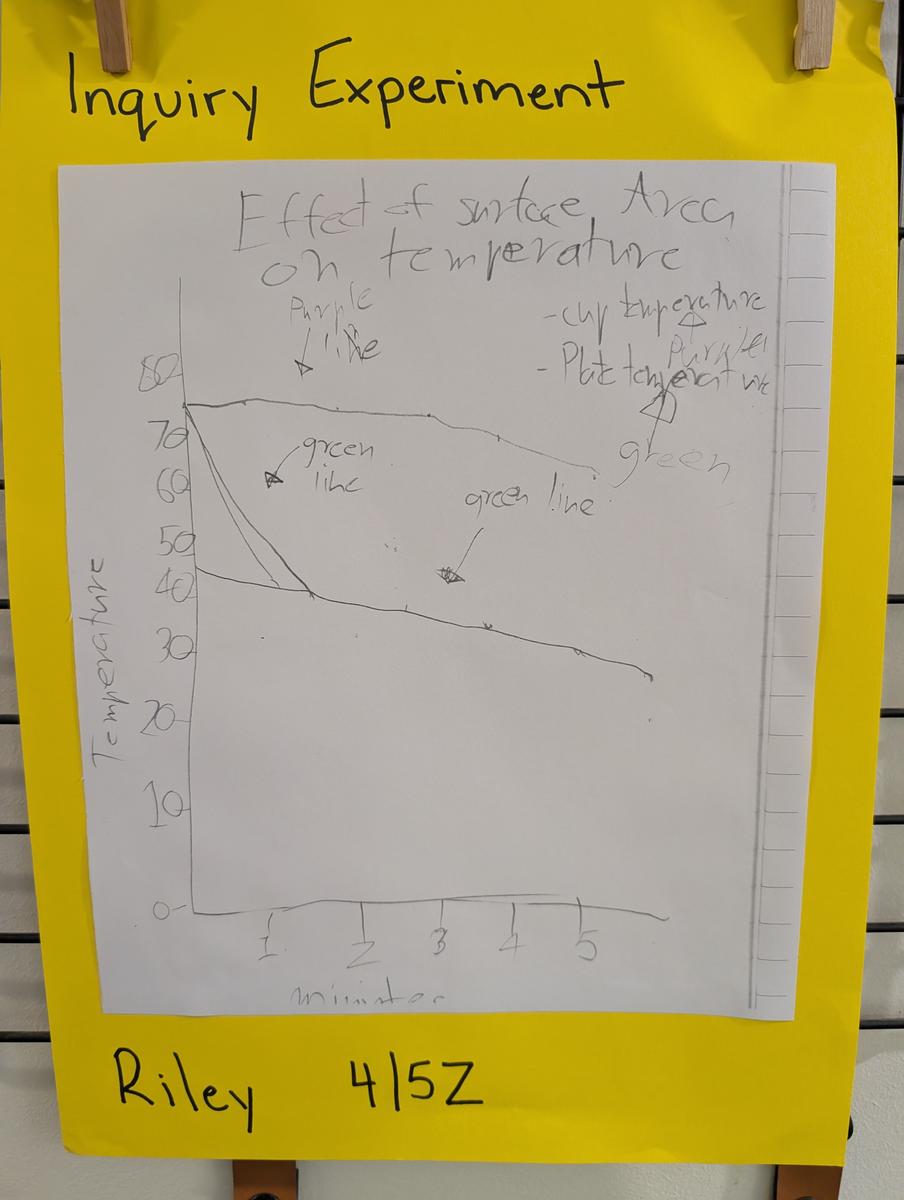 Inquiry Experiment
Effect of surface Area
on temperature
Purple
line
-cup temperature
Purple
-Plate temperature
green
green
line
green line
80
70
60
50
40
30
20
10
0
Temperature
1 2 3 4 5
minutes
Riley 4/5Z